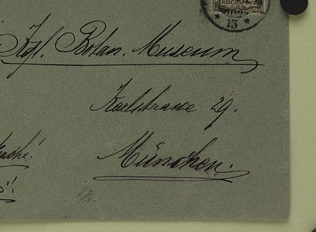 Kgl. Botan. Museum
Karlstrasse 29.
München.